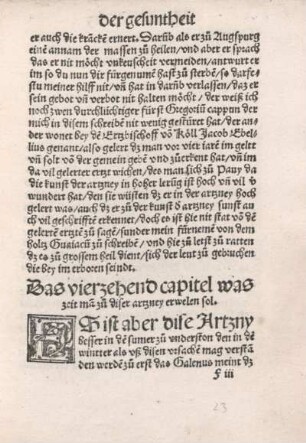 der gesuntheit
er auch die kräcke͂ ernert. Darũb als er zů Augspurg
eine͂ annem der massen zů heilen/vnd aber er sprach
das er nit möcht vnkeuscheit vermeiden/antwurt er
im so du nun die fürgenum̃e hast zů sterbe͂/so darfe-
stu meiner hilff nit/vñ hat in darũb verlassen/daz er
sein gebot vñ verbot nit halten möcht/der weiß ich
noch zwen durchlüchtiger fürst Gregoriũ cappun der
mich in disem schreibe͂ nit wenig gestürt hat/der an-
der wonet bey de͂ Ertzbischoff vö Köll Jacob Ebel-
lius genant/also gelert dz man vor vier iare͂ im gelt
vñ solt vö der gemein gebe͂ vnd zůerkent hat/vñ im
da vil gelerter ertzt wichen/des man sich zů Pauy da
die kunst der artzney in hoher lerũg ist hoch vñ vil v̈
wundert hat/den sie wüsten dz er in der artzney hoch
gelert was/auch dz er zů der kunst ö artzney sunst au
ch vil geschrifftē erkennet/doch es ist hie nit stat vö de͂
gelerte͂ ertzte͂ zů sage͂/sunder mein fürneme͂ von dem
holtz Guaiacũ zů schreibe͂/vnd hie zů letst zů ratten
dz es zů grossem heil dient/sich der leut zů gebruchen
die bey im erboren seindt.
Das vierzehend capitel was
zeit mã zů diser artzney erwelen sol.
ES ist aber dise Artzny
besser in de͂ sumer zů vnderston den in de͂
wintter als vß disen vrsache͂ mag verstã
den werde͂ zů erst das Galenus meint dz
F iii
23